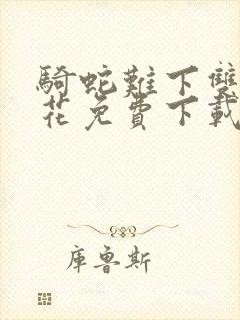 騎蛇難下雙
花免費下載
庫魯斯